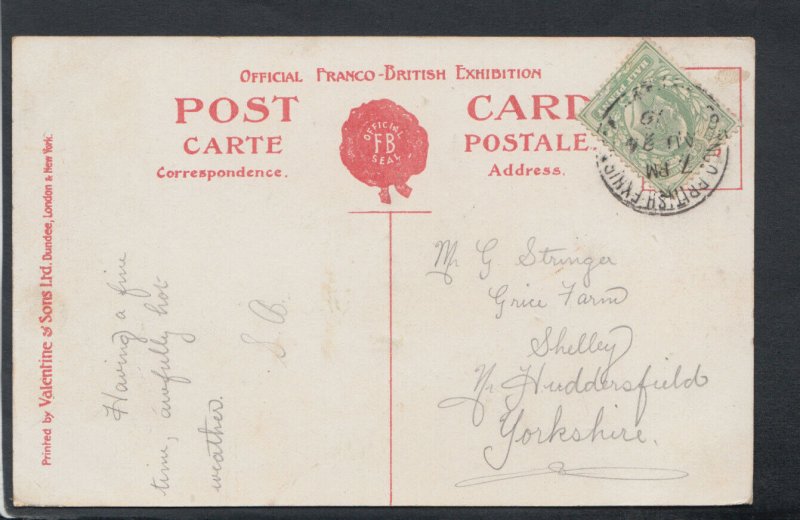 OFFICIAL FRANCO-BRITISH EXHIBITION
POST CARD
CARTE POSTALE
Correspondence. Address.
OFFICIAL
F B
SEAL
Printed by Valentine & Sons Ltd. Dundee, London & New York.
Having a fine
time, awfully hot
weather.
S. B.
Mr G Stringer
Grice Farm
Shelley
Nr Huddersfield
Yorkshire.
7 PM
AU
BRITISH EXHIB